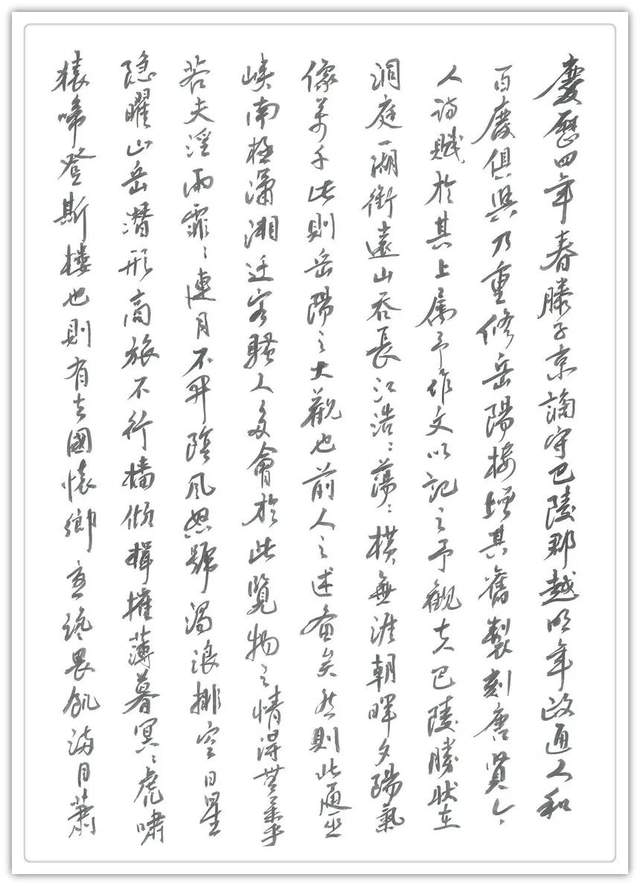 慶歷四年春滕子京謫守巴陵郡越明年政通人和
百廢俱興乃重修岳陽樓增其舊製刻唐賢今
人詩賦於其上属予作文以記之予觀夫巴陵勝狀在
洞庭一湖銜遠山吞長江浩々蕩々橫無涯朝暉夕陽氣
像萬千此則岳陽之大觀也前人之述备矣然則北通巫
峽南極瀟湘迁客騷人多會於此覽物之情得無異乎
若夫淫雨霏々連月不開陰風怒號濁浪排空日星
隐曜山岳潛形商旅不行檣傾楫摧薄暮冥々虎嘯
猿啼登斯樓也則有去國懷鄉憂讒畏讥满目蕭